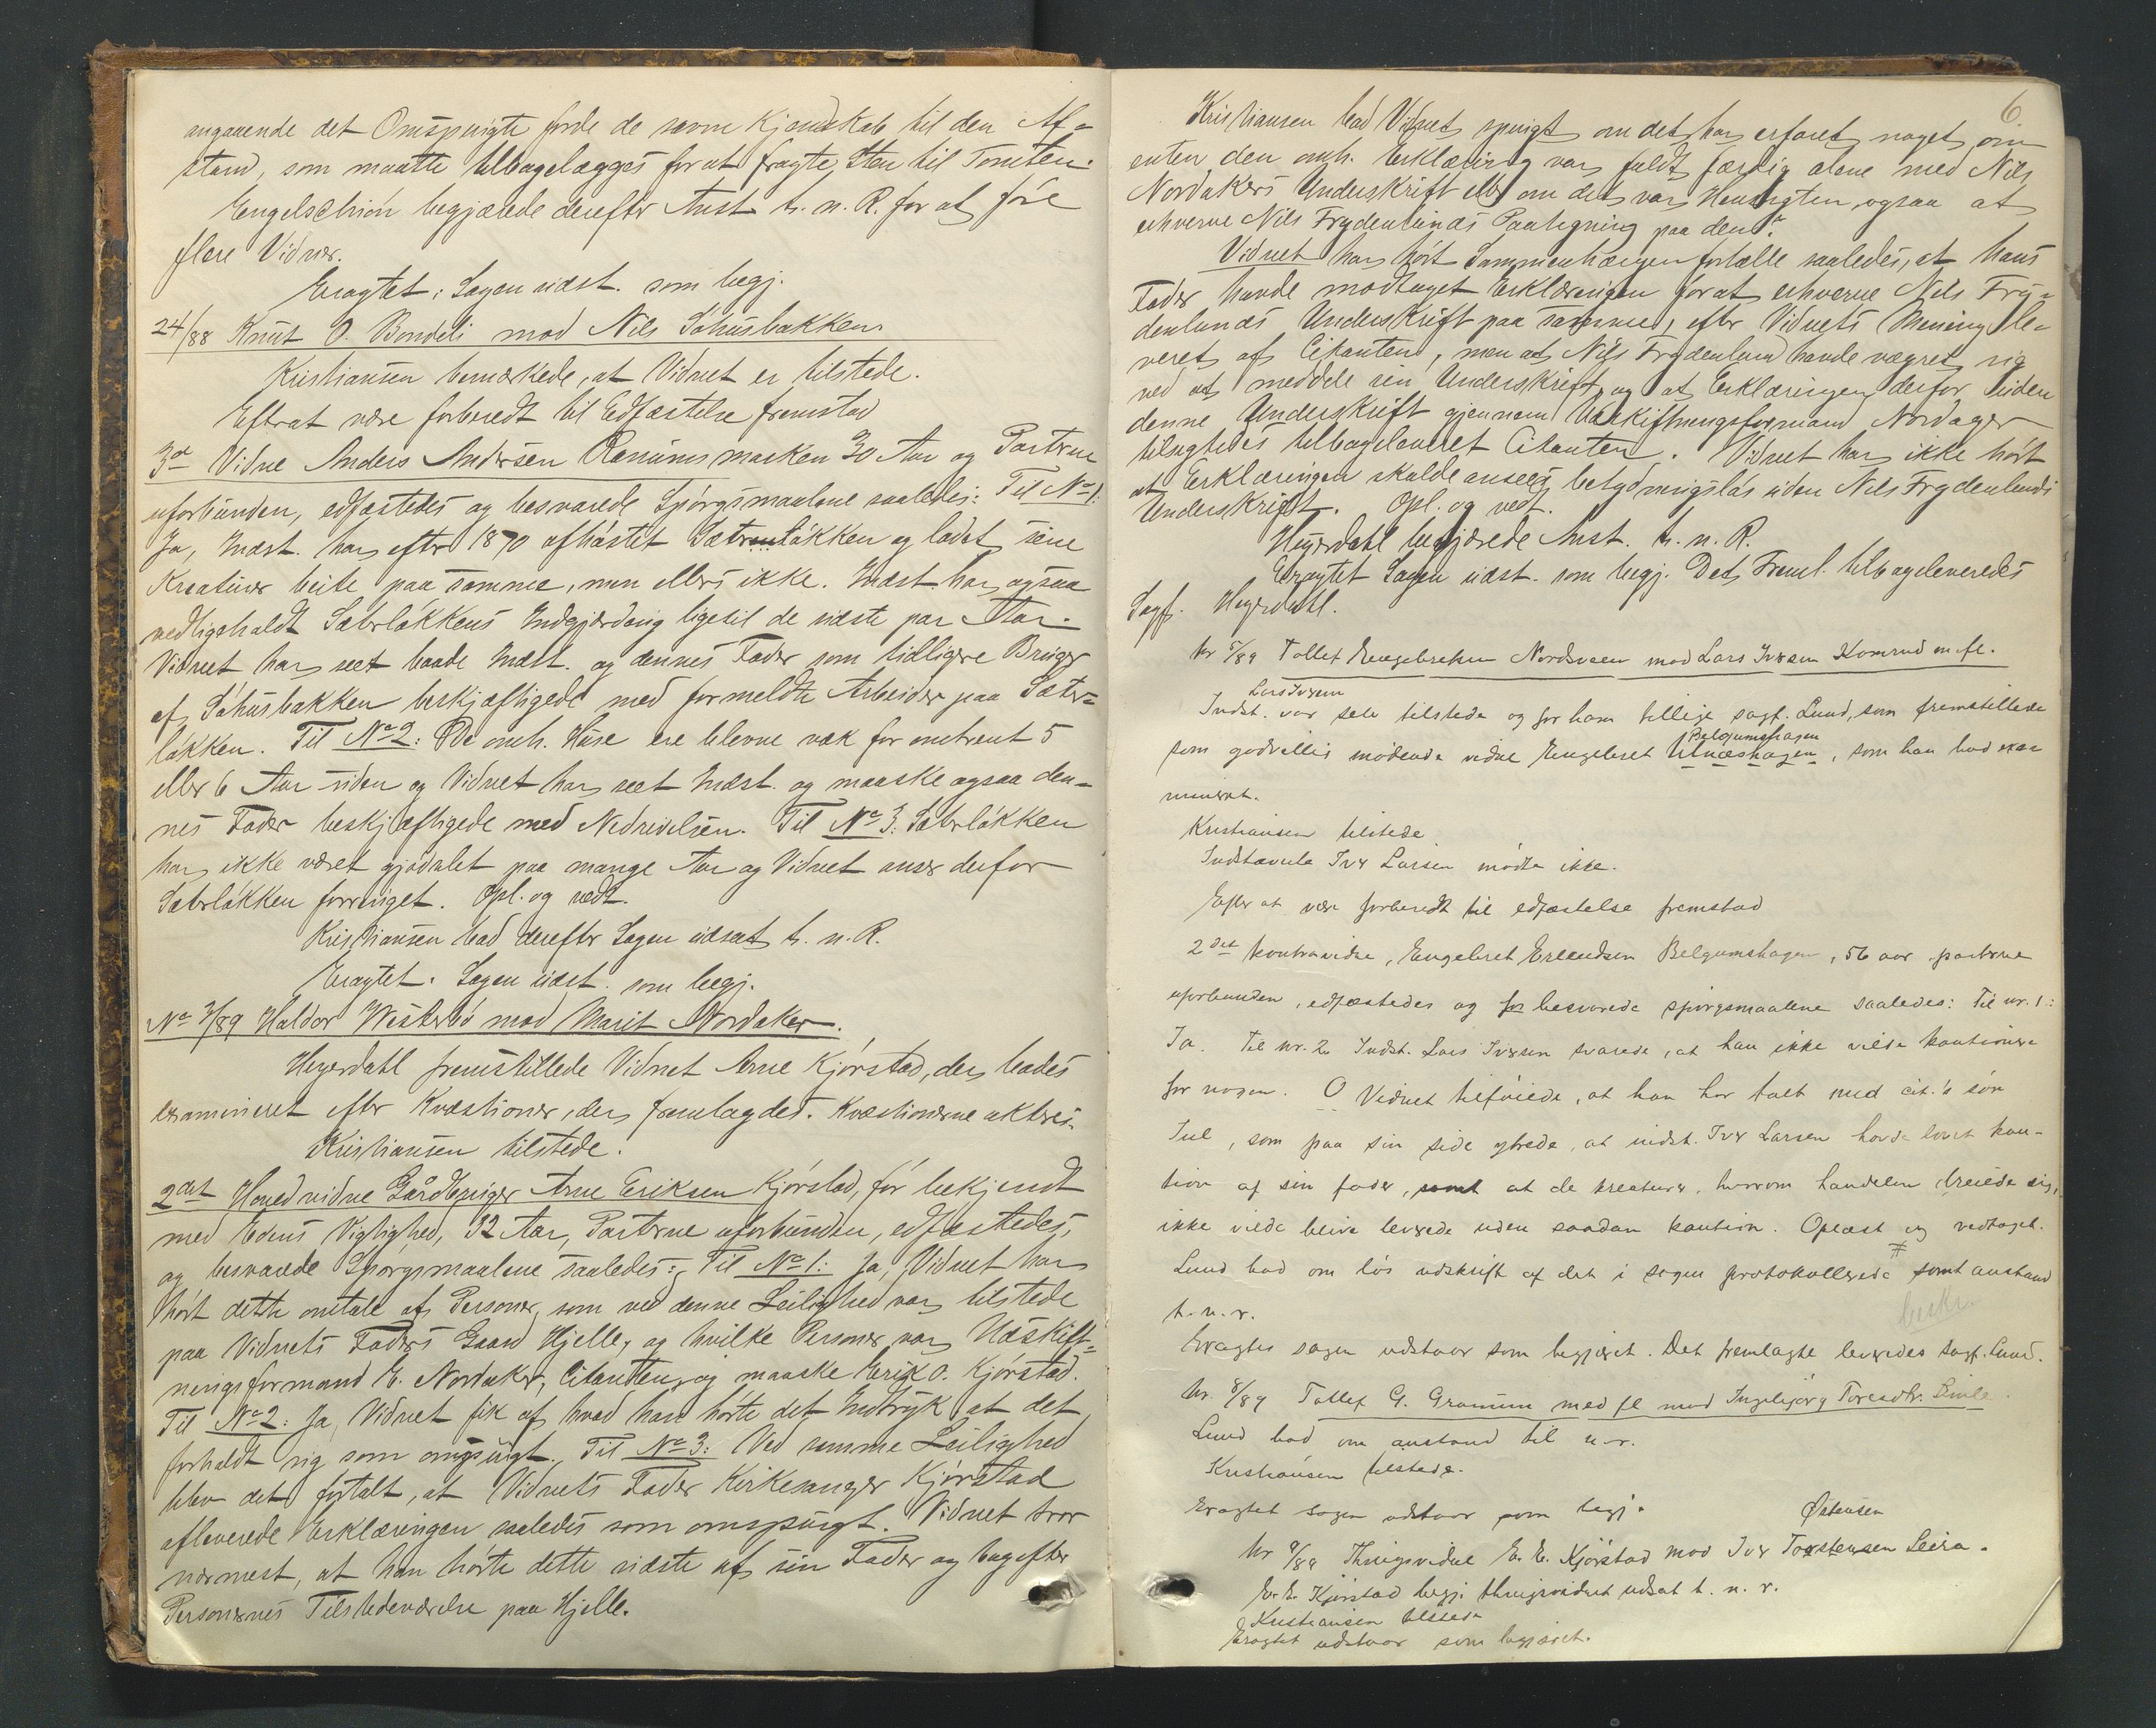 angaaende det Omspurgte fordi de savne Kjendskab til den Af-
stand, som maatte tilbagelægges for at fragte Sten til Tomten.
Engelschiøn begjærede derefter Anst. t. n. R. for at føre
flere Vidner.
Eragtet: Sagen udst. som begj.
24/88 Knut O. Bondeli mod Nils Sohusbakken
Kristiansen bemærkede, at Vidnet er tilstede.
Efterat være forberedt til Edfæstelse fremstod
3die Vidne Anders Andersen Ranumsmarken 30 Aar og Parterne
uforbunden, edfæstedes og besvarede Spørgsmaalene saaledes: Til No 1:
Ja, Indst. har efter 1870 afhøstet Sæterløkken og ladet sine
Kreaturer beite paa samme, men ellers ikke. Indst. har ogsaa
vedligeholdt Sæterløkkens Indgjærding ligetil de sidste par Aar.
Vidnet har seet baade Indst. og dennes Fader som tidligere Bruger
af Sohusbakken beskjæftigede med formeldte Arbeider paa Sæter-
løkken. Til No 2: De omh. Huse ere blevne væk for omtrent 5
eller 6 Aar siden og Vidnet har seet Indst. og maaske ogsaa den-
nes Fader beskjæftigede med Nedrivelsen. Til No 3: Sæterløkken
har ikke været gjødslet paa mange Aar og Vidnet anser derfor
Sæterløkken forringet. Opl. og vedt.
Kristiansen bad derefter Sagen udsat t. n. R.
Eragtet. Sagen udst. som begj.
No 3/89 Haldor Westerbø mod Marit Nordaker.
Heyerdahl fremstillede Vidnet Arne Kjørstad, der bades
examineret efter Kvæstioner, der fremlagdes. Kvæstionerne akteres.
Kristiansen tilstede.
2det Hovedvidne Gårdbruger Arne Eriksen Kjørstad, før bekjendt
med Edens Vigtighed, 32 Aar, Parterne uforbunden, edfæstedes,
og besvarede Spørgsmaalene saaledes: Til No 1: Ja, Vidnet har
hørt dette omtale af Personer, som ved denne Leilighed var tilstede
paa Vidnets Faders Gaard Hjelle, og hvilke Personer var Udskift-
ningsformand E. Nordaker, Citanten, og maaske Erik O. Kjørstad.
Til No 2: Ja, Vidnet fik af hvad han hørte det Indtryk at det
forholdt sig som omspurgt. Til No 3: Ved samme Leilighed
blev det fortalt, at Vidnets Fader Kirkesanger Kjørstad
afleverede Erklæringen saaledes som omspurgt. Vidnet tror
nærmest, at han hørte dette sidste af sin Fader og bagefter
Personernes Tilstedeværelse paa Hjelle.
6
Kristiansen bad Vidnet spurgt om det har erfaret noget om
enten den omh. Erklæring var fuldt færdig alene med Nils
Nordakers Underskrift eller om det var Hensigten, ogsaa at
erhverve Nils Frydenlunds Paategning paa den?
Vidnet har hørt Sammenhængen fortælle saaledes, at hans
Fader havde modtaget Erklæringen for at erhverve Nils Fry-
denlunds Underskrift paa samme, efter Vidnets Mening le-
veret af Citanten, men at Nils Frydenlund havde vægret sig
ved at meddele sin Underskrift, og at Erklæringen derfor uden
denne Underskrift gjennem Udskiftningsformand Nordager
tilsigtedes tilbageleveret Citanten. Vidnet har ikke hørt
at Erklæringen skulde ansees betydningsløs uden Nils Frydenlunds
Underskrift. Opl. og vedt.
Heyerdahl begjærede Anst. t. n. R.
Eragtet Sagen udst. som begj. Det Freml. tilbageleveredes
Sagf. Heyerdahl.
Nr 5/89 Tollef Engebretsen Nordsveen mod Lars Iversen Komrud m. fl.
Lars Iversen
Indst. var selv tilstede og for ham tillige sagf. Lund, som fremstillede
Belgumshagen
som godvillig mødende vidne Engebret Ulnæshagen, som han bad exa-
mineret.
Kristiansen tilstede
Indstævnte Iver Larsen mødte ikke.
Efter at være forberedt til edfæstelse fremstod
2det kontravidne, Engebret Erlendsen Belgumshagen, 56 aar parterne
uforbunden, edfæstedes og for besvarede spørgsmaalene saaledes: Til nr. 1:
Ja. Til nr. 2 Indst. Lars Iversen svarede, at han ikke vilde kautionere
for nogen. O Vidnet tilføiede, at han har talt med cit.'s søn
Jul, som paa sin side ytrede, at indst. Iver Larsen havde lovet kau-
tion af sin fader, samt at de kreaturer, hvorom handelen dreiede sig,
ikke vilde blive leverede uden saadan kaution. Oplæst og vedtaget.
Lund bad om løs udskrift af det i sagen protokollerede samt anstand
beskr.
t. n. r.
Eragtes sagen udstaar som begjæret. Det fremlagte leveredes sagf. Lund.
Nr. 8/89 Tollef G. Gramum med fl mod Ingebjørg Toresdtr. Linle.
Lund bad om anstand til n. r.
Kristiansen tilstede.
Eragtet sagen udstaar som begj.
Østensen
Nr 9/89 Thingsvidne E. E. Kjørstad mod Iver Torstensen Leira.
E. E. Kjørstad begj. thingsvidnet udsat t. n. r.
Kristiansen tilstede
Eragtet udstaar som begjæret.